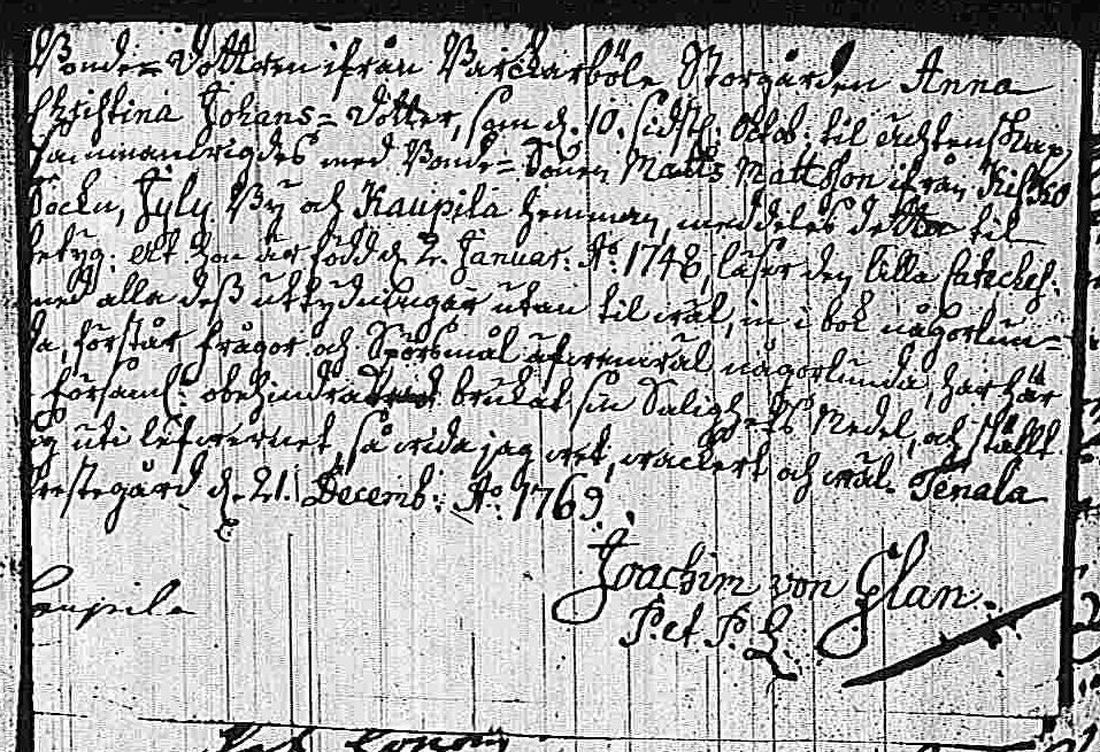 Bonde-Dottren ifrån Varckarböle Storgården Anna
Christina Johans-Dotter, som d. 10. sidstl. Octob: til ächtenskap
sammanvigdes med Bonde-Sonen Matts Mattsson ifrån Kisko
Sockn, Jyly By och Kaupila Hemman, meddeles detta til
betyg: at hon är född d. 2. Januar: Ao. 1748, läser den lilla Catechs:
med alla dess uttydningar utan til wäl, in i bok någorlun-
da, förstår frågor och Spörsmål äfwenwäl någorlunda, har här
i församl: obehindrat brukat sin Salighets Medel, och stält
sig uti lefwernet, så wida jag wet, wackert och wäl. Tenala
Prestegård d. 21. Decemb: Ao. 1769.
Joachim von Glan.
Kaupila
P. et P. L.